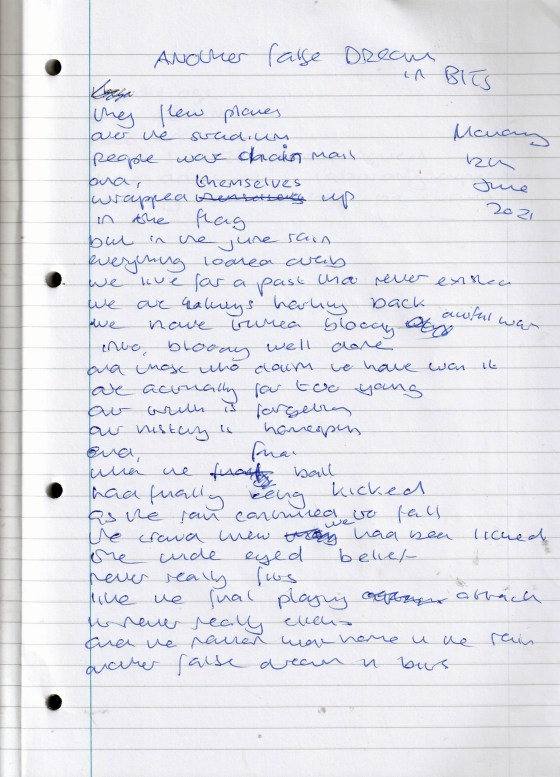 ANOTHER false DREAM
in BITS
they flew planes
over the stadium
people wore chain mail
and, themselves
wrapped up
in the flag
but in the june rain
everything looked drab
we live for a past that never existed
we are always harking back
we have turned bloody awful war
into, bloody well done
and those who claim we have won it
are actually far too young
our truth is forgotten
our history is homespun
and,
when the final ball
had finally being kicked
as the rain continued to fall
the crowd knew we had been licked
the wide eyed belief
never really fits
like the final playing attack
it never really clicks
and the nation walk home in the rain
another false dream in bits
Monday
12th
June
2021